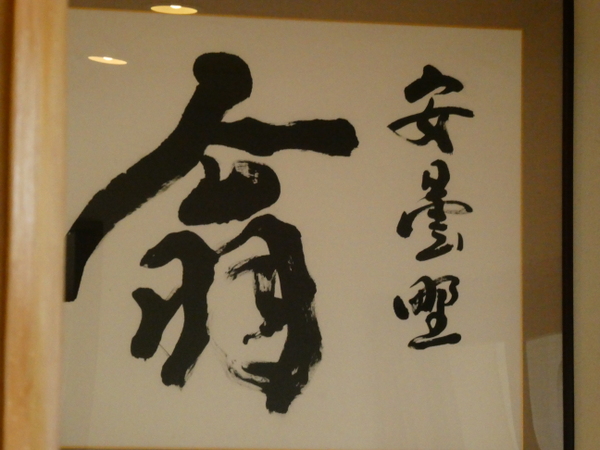 安曇野
翁